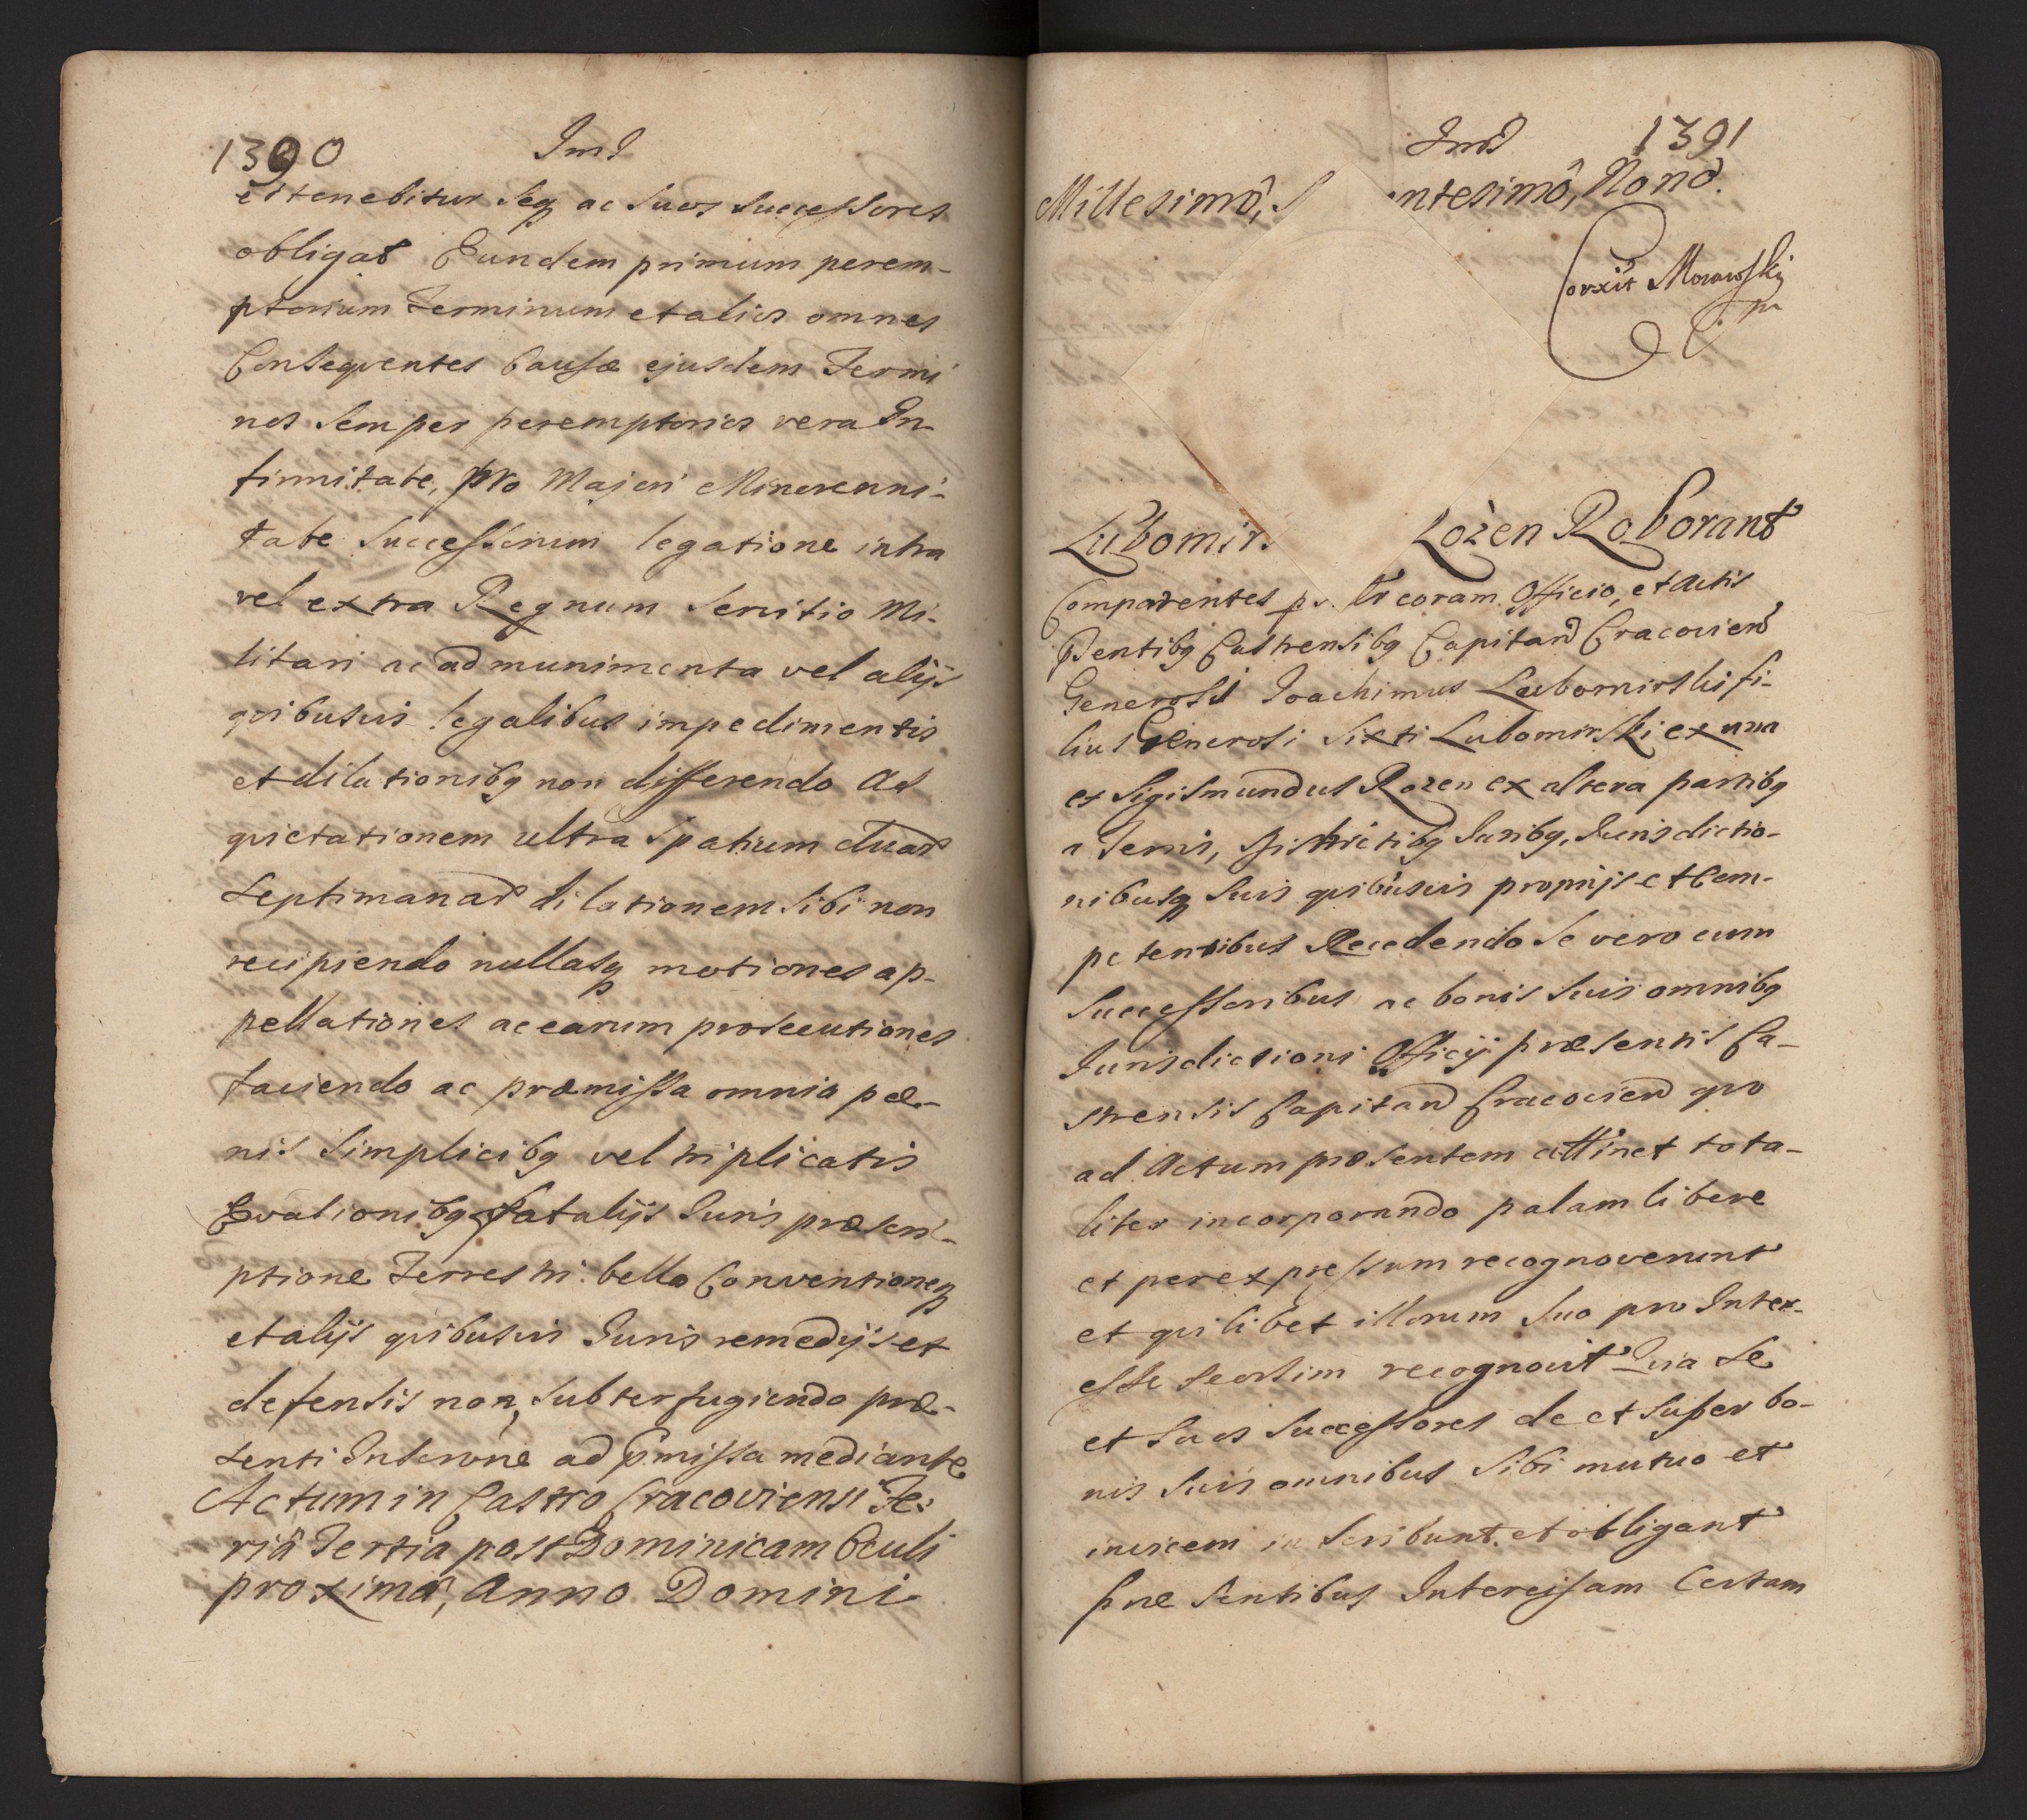 1390 Ind
et tenebitur Seq ac Suos Successores
obligat Eundem primum perem-
ptorium Terminum et alios omnes
Consequentes Causæ ejusdem Termi
nos Semper peremptorios vera In-
firmitate, pro Majori Minorenni-
tate Successorum legatione intra
vel extra Regnum Servitio Mi-
litari ac ad munimenta vel alijs
quibusvis legalibus impedimentis
et dilationibq non differendo Ad
quietationem ultra Spatium duar
Septimanar dilationem Sibi non
recipiendo nullasq motiones ap-
pellationes ac earum prosecutiones
faciendo ac præmissa omnia pæ-
nis Simplicibq vel triplicatis
Evasionibq fatalijs Juris præscri-
ptione Terrestri bello Conventioneq
et alijs quibusvis Juris remedijs et
defensis non Subterfugiendo præ-
senti Inscrōne ad p̄missa mediante
Actum in Castro Cracoviensi Fe:
riâ Tertia post Dominicam Oculi
proximâ, Anno Domini
Ind 1391
Millesimô, S ntesimô, Nonô.
Corxit Morawskj
mp
Lubomir Rozen Roborant
Comparentes coram Officio, et Actis
Pñtibq Castrensibq Capitan Cracovien
Generosi Joachimus Lubomirski fi-
lius Generosi Sixti Lubomirski ex una
et Sigismundus Rozen ex altera partibq
a Terris, Districtibq Juribq, Jurisdictio-
nibusq Suis quibusvis proprijs et Com-
petentibus Recedendo Se vero cum
Successoribus ac bonis Suis omnibq
Jurisdictioni Officij præsentis Ca-
strensis Capitan Cracovien quo
ad Actum præsentem attinet tota-
liter incorporando palam libere
et per expressum recognoverunt
et quilibet illorum Suo pro Inter-
esse seorsim recognovit Quia Se
et Suos Successores de et Super bo-
nis Suis omnibus Sibi mutuo et
invicem inscribunt et obligant
præsentibus Intercisam Certam